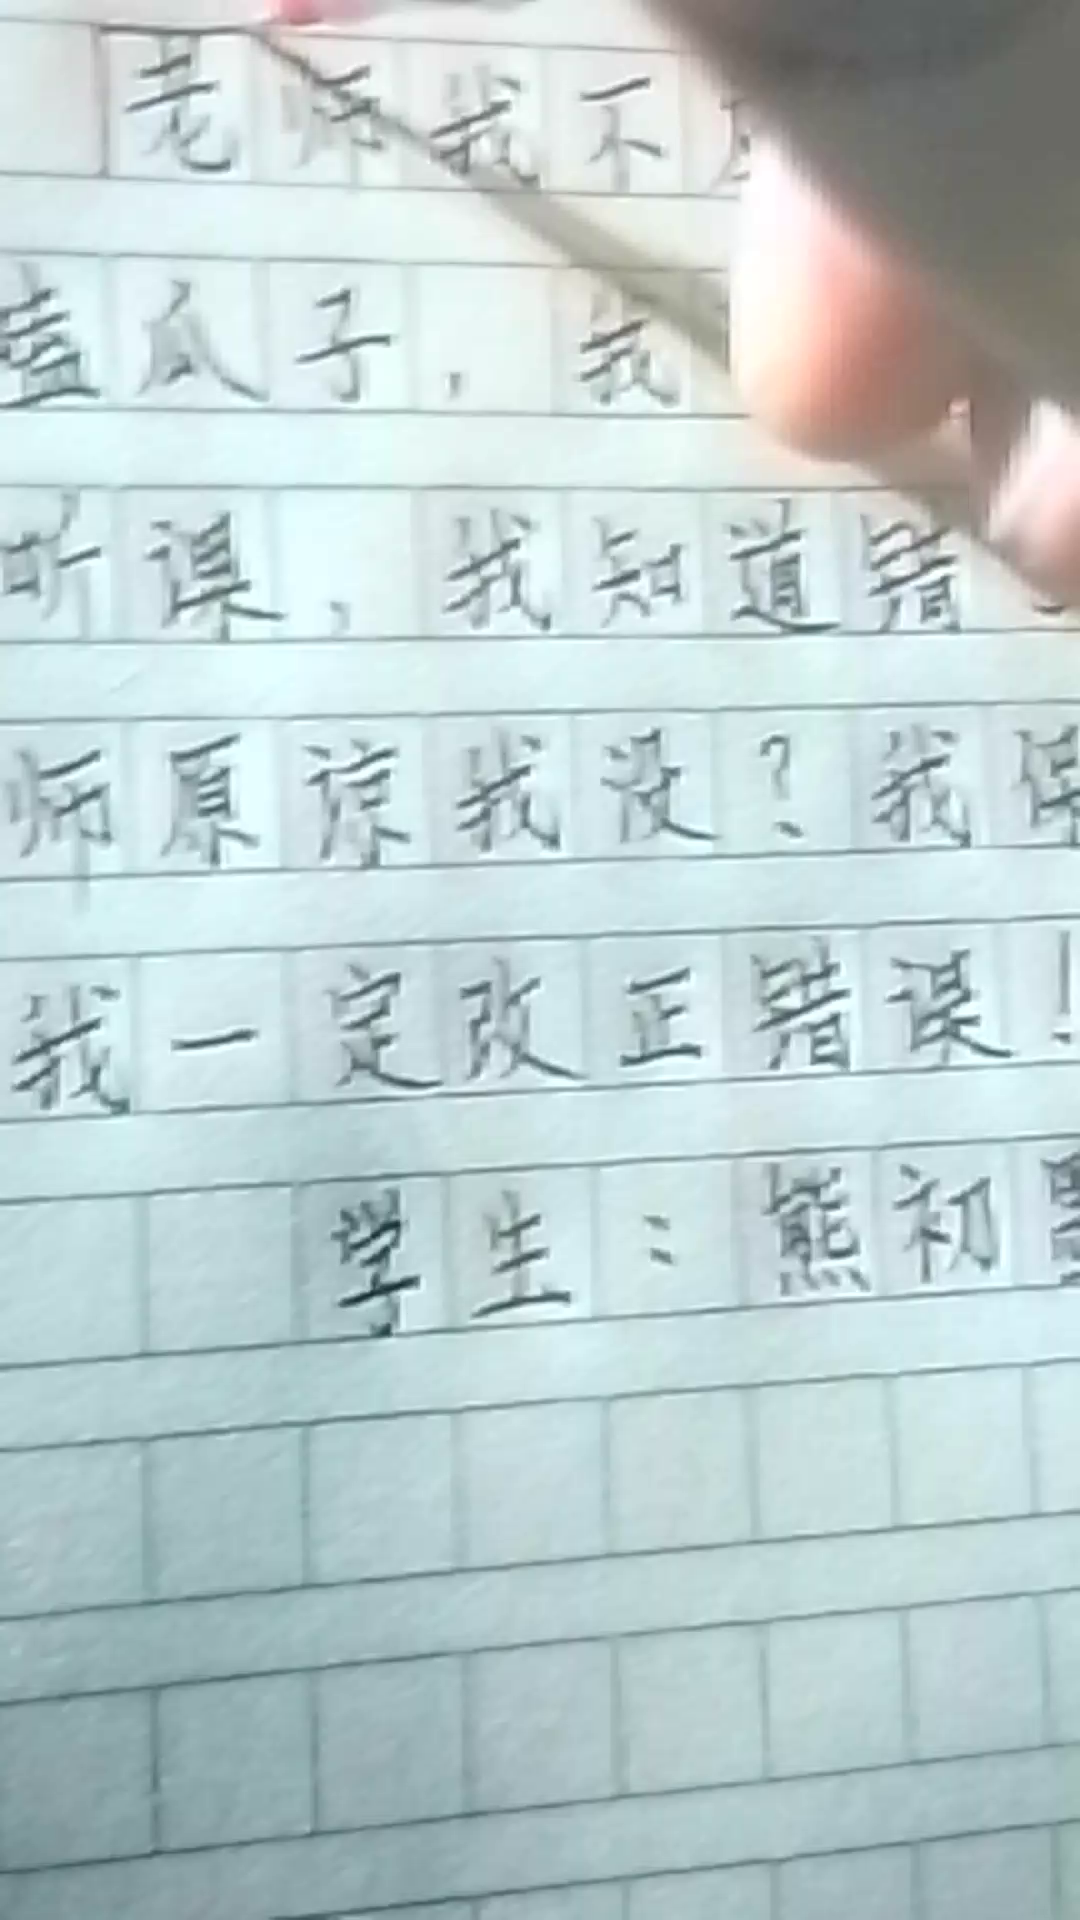 老师我不
嗑瓜子，我
听课，我知道错
师原谅我没？我保
我一定改正错误！
学生：熊初墨